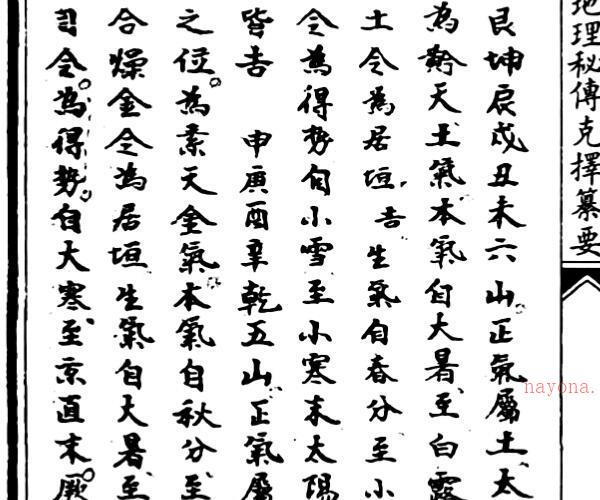 地理秘傳克擇纂要
艮坤辰戌丑未六山正氣屬土太
為黅天土氣本氣自大暑至白露
土令為居垣吉生氣自春分至小
令為得勢自小雪至小寒末太陽
皆吉 申庚酉辛乾五山正氣屬
之位為素天金氣本氣自秋分至
合燥金令為居垣生氣自大暑至
司令為得勢自大寒至京直末厥
nayona.